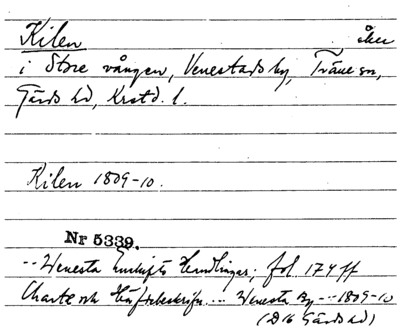 Kilen åker
i Store vången, Venestads by, Träne sn,
Gärds hd, Krstd. l.
Kilen 1809-10.
Nr 5339.
--- Wenesta Enskifts Handlingar; fol. 174 ff
Charta och Häftebeskrifn... Wenesta By --- 1809-10
(D16 Gärds hd)